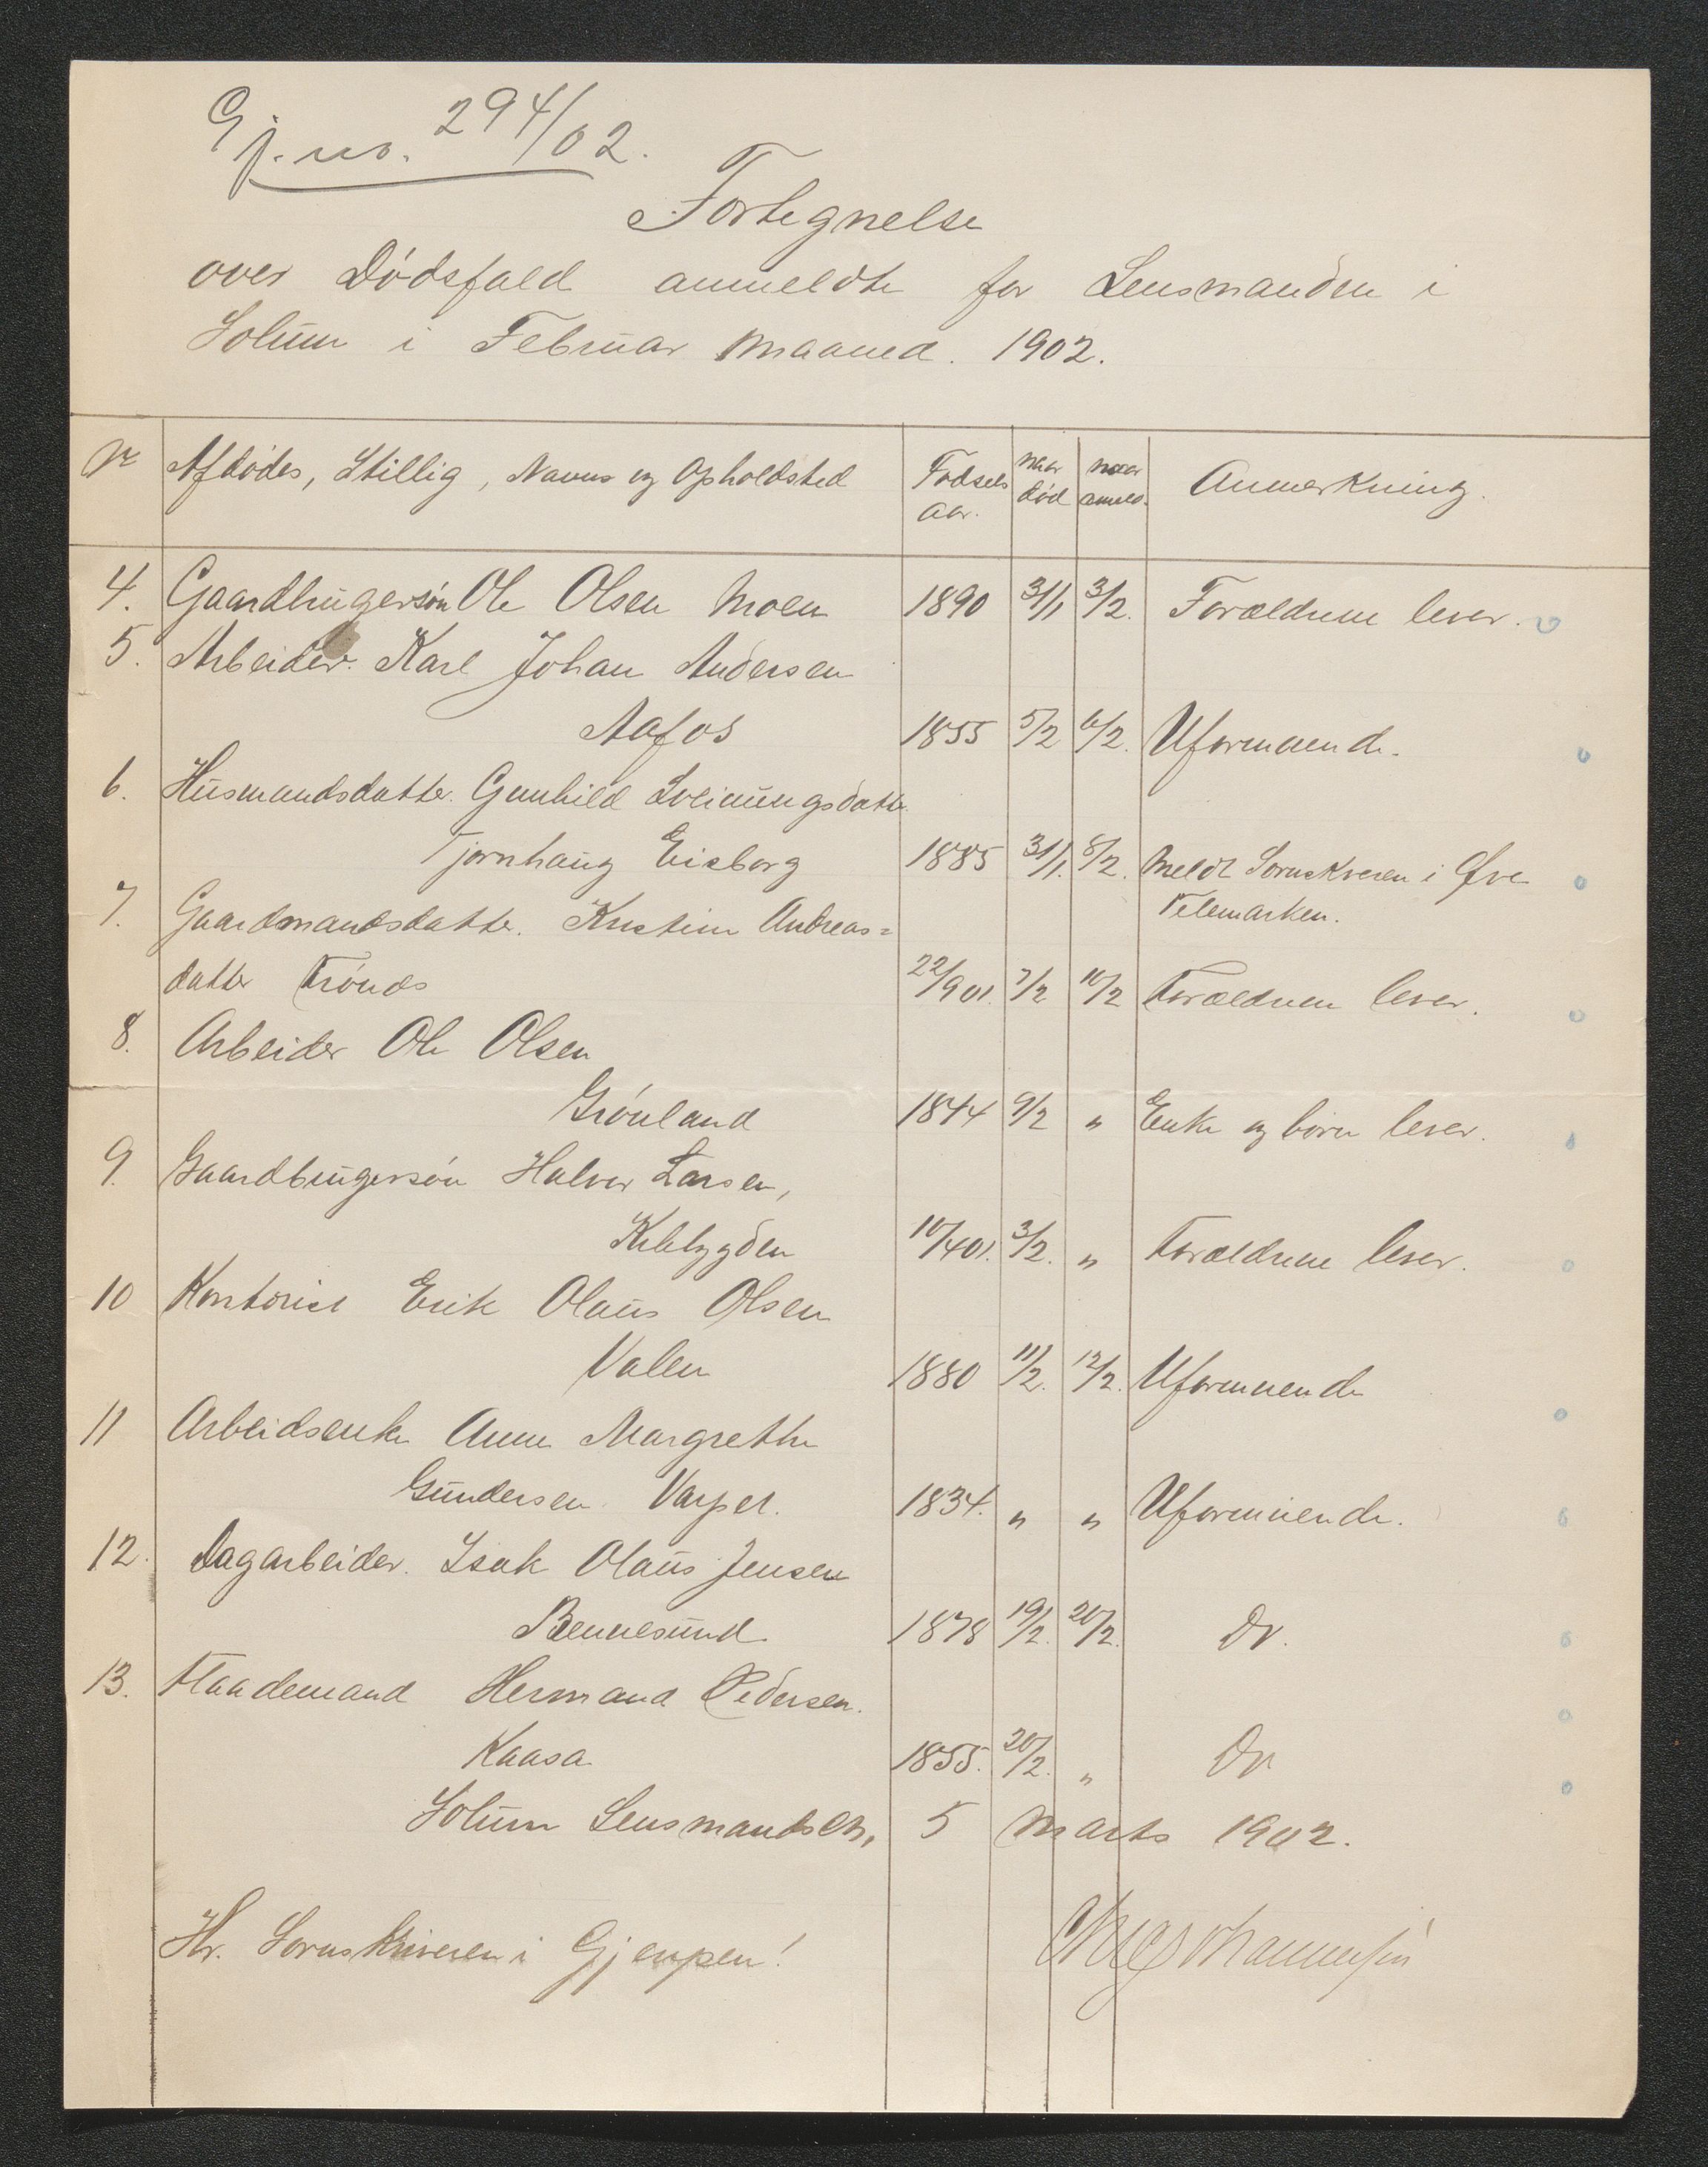 Gj. no. 294/02.
Fortegnelse
over Dødsfald anmeldte for Lensmanden i
Solum i Februar Maaned. 1902.
Nr Afdødes, Stillig, Navns og Opholdsted Fødsels Aar. naar død naar anmeld. Anmerkning.
4. Gaardbrugersøn Ole Olsen Moen 1890 31/1 3/2. Forældrene lever.
5. Arbeider. Karl Johan Andersen
Aafos 1855 5/2 6/2. Uformuende.
6. Husmandsdatter. Gunhild Sveinungsdatter.
Tjørnhaug Eisborg 1885 31/1. 8/2. Meldt Sorenskriveren i Øvre
Telemarken.
7. Gaardmandsdatter. Kristine Andreas=
datter Trönds 22/901. 7/2 10/2 Forældrene lever.
8. Arbeider Ole Olsen
Grönland 1844 9/2 " Enke og børn lever.
9. Gaardbrugersøn Halvor Larsen,
Kilebygden 10/401. 3/2. " Forældrene lever.
10 Kontorist Erik Olaus Olsen
Valen 1880 11/2. 12/2. Uformuende
11 Arbeidsenke Anne Margrethe
Gundersen Varpet. 1834. " " Uformuende.
12. Dagarbeider. Isak Olaus Jensen
Bennesund 1878 19/2. 20/2. Do.
13. Flaademand Hermand Pedersen.
Kaasa 1855. 20/2. " Do
Solum Lensmandsktr, 5 Marts 1902.
Hr. Sorenskriveren i Gjerpen!